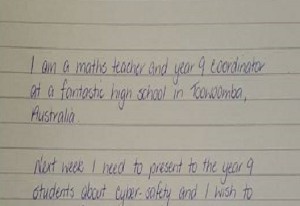 I am a maths teacher and year 9 coordinator
at a fantastic high school in Toowoomba,
Australia
Next week I need to present to the year 9
students about cyber-safety and I wish to